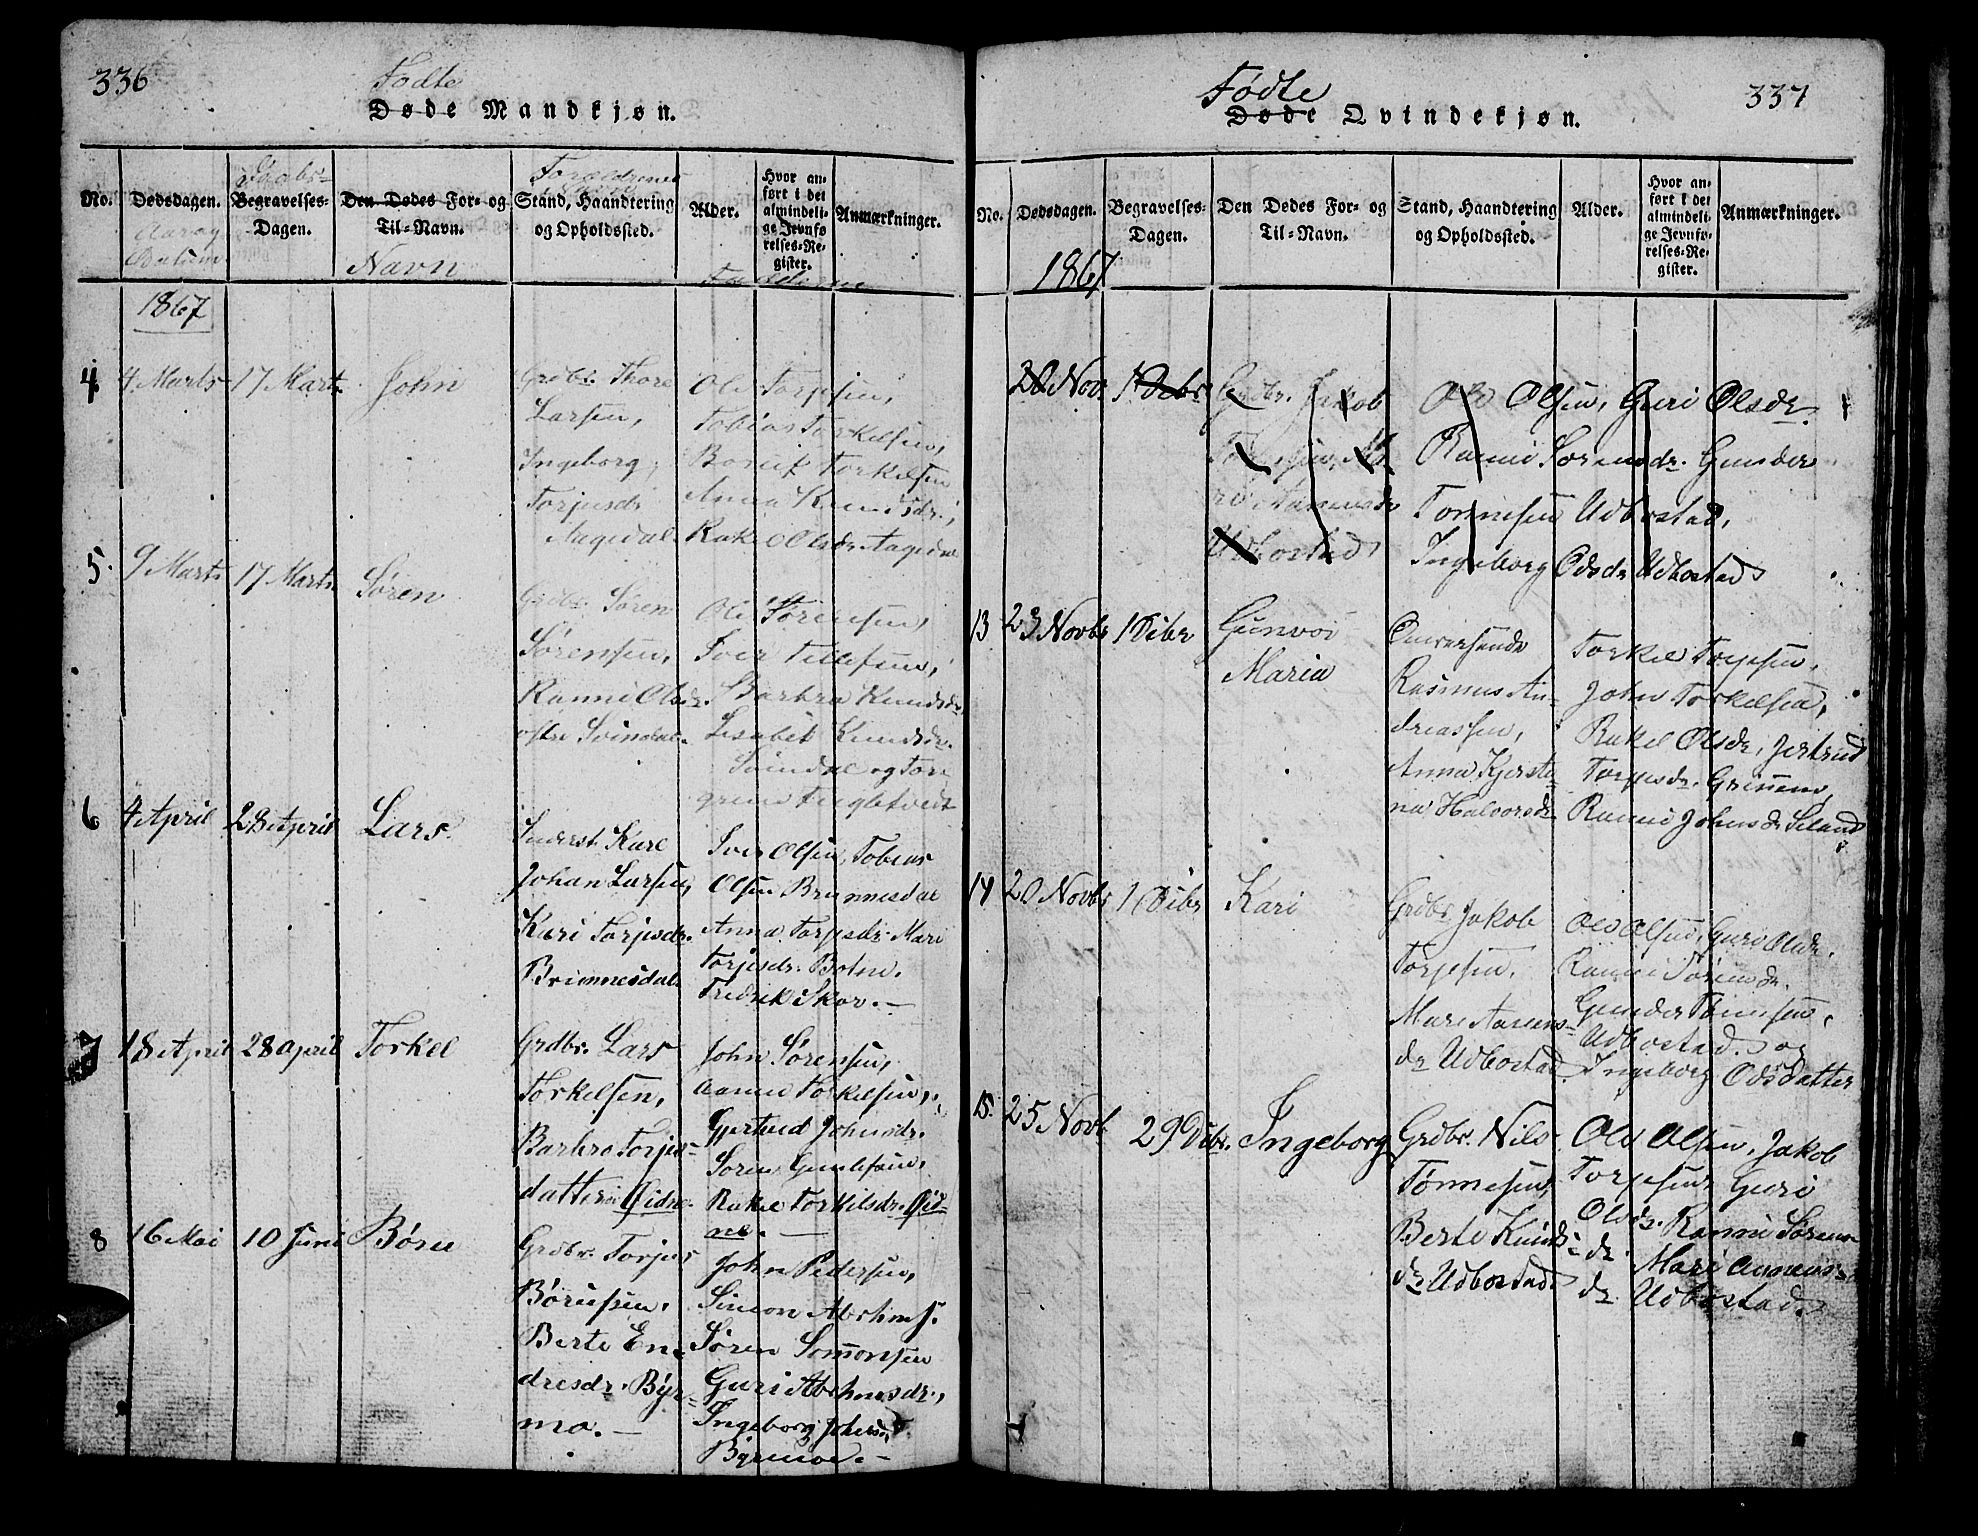 336
Fødte
Døde Mandkjøn.
No.
Dødsdagen.
Aar og
Datum
Daabs-
Begravelses-
Dagen.
Den Dødes For- og
Til-Navn.
Navn
Forældrenes
Stand, Haandtering
og Opholdssted.
Alder.
Hvor an-
ført i det
almindeli-
ge Jevnfø-
relses-Re-
gister.
Anmærkninger.
Fadderne
1867
4 4 Marts 17 Marts John
Grdbr. Thore
Larsen,
Ingeborg
Torjusdr
Aagedal.
Ole Torjesen,
Tobias Torkelsen,
Torkelsen
Anna Knudsdr.,
Olsdr Aagedal
5. 9 Marts 17 Marts Søren
Grdbr. Søren
Sørensen,
Ranni Olsdr.
østre Svindal.
Ole Sørensen,
Iver Tellefsen,
Barbra Knudsdr
Lisabet Knudsdr.
Svindal og Tor
6 4 April 28 April Lars.
Inderst Karl
Johan Larsen,
Kari Torjesdr.
Brinnesdal.
Iver Olsen, Tobias
Olsen Brunnesdal
Anna Torjesdr. Mari
Torjesdr. Botn.
Fredrik Skor. —
7 18 April 28 April Torkel
Grdbr. Lars
Torkelsen,
Barbro Torjus-
datter
John Sørensen,
Aanen Torkelsen,
Gjertrud Johnsdr.
Søren Gunlefsen,
Rakel Torkilsdr.
8 16 Mai 10 Juni Børu
Grdbr. Torjus
Børusen,
Berte En-
dresdr. Byr-
mo. —
John Pedersen,
Simon Abrhms.
Søren Somonsen
Guri Abrhmsdr.,
Ingeborg Johnsdr.
Byrmoe. —
337
Fødte
Døde Qvindekjøn.
No.
Dødsdagen.
Begravelses-
Dagen.
Den Dødes For- og
Til-Navn.
Stand, Haandtering
og Opholdssted.
Alder.
Hvor an-
ført i det
almindeli-
ge Jevnfø-
relses-Re-
gister.
Anmærkninger.
1867
20 Nov. 1 Debr
Grdbr. Jakob
Torjesen, Ma-
ri Aanensdr
Udbostad
Olv Olsen, Guri Olsdr.
Ranni Sørensdr. Gunder
Tønnesen Udbostad,
Ingeborg Odsdr Udbostad
13 23 Novbr 1 Debr Gunvor
Maria
Omreisende
Rasmus An-
dreassen,
Anna Kjersti-
na Halvorsdr.
Torkel Torjesen,
John Torkelsen,
Rakel Olsdr, Jertrud
Torjesdr. Grinem,
Ranni Johnsdr Seland
14 20 Novbr 1 Debr Kari
Grdbr. Jakob
Torjesen,
Mari Aanens-
dr Udbostad.
Olv Olsen, Guri Olsdr.
Ranni Sørensdr.
Gunder Tønnesen,
Udbostad. og
Ingeborg Odsdatter
15. 25 Novb 29 Debr. Ingeborg
Grdbr. Nils
Tønnesen,
Berte Knuds-
dr Udbostad.
Olv Olsen, Jakob
Torjesen Guri
Olsdr. Ranni Sørens-
dr. Mari Aanens-
dr. Udbostad.